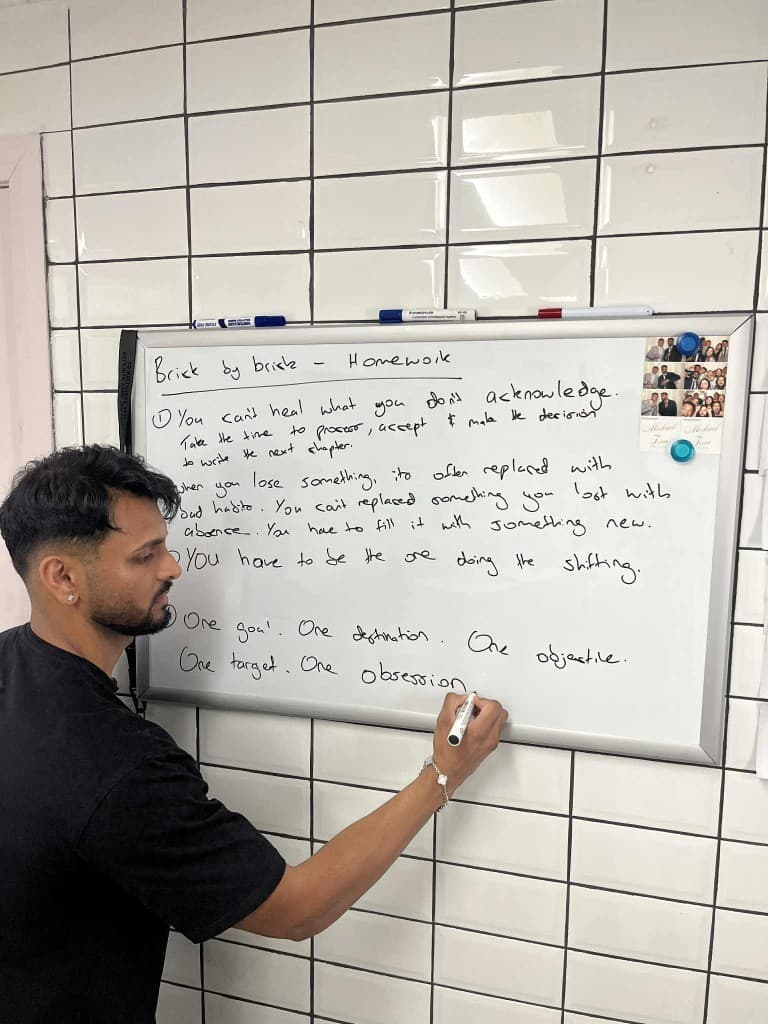 Brick by brick - Homework
① You can't heal what you don't acknowledge.
Take the time to process, accept & make the decision
to write the next chapter.
hen you lose something, its often replaced with
bad habits. You can't replaced something you lost with
absence. You have to fill it with something new.
YOU have to be the one doing the shifting.
One goal. One destination. One objective.
One target. One obsession
STAEDTLER
Michael
Michael